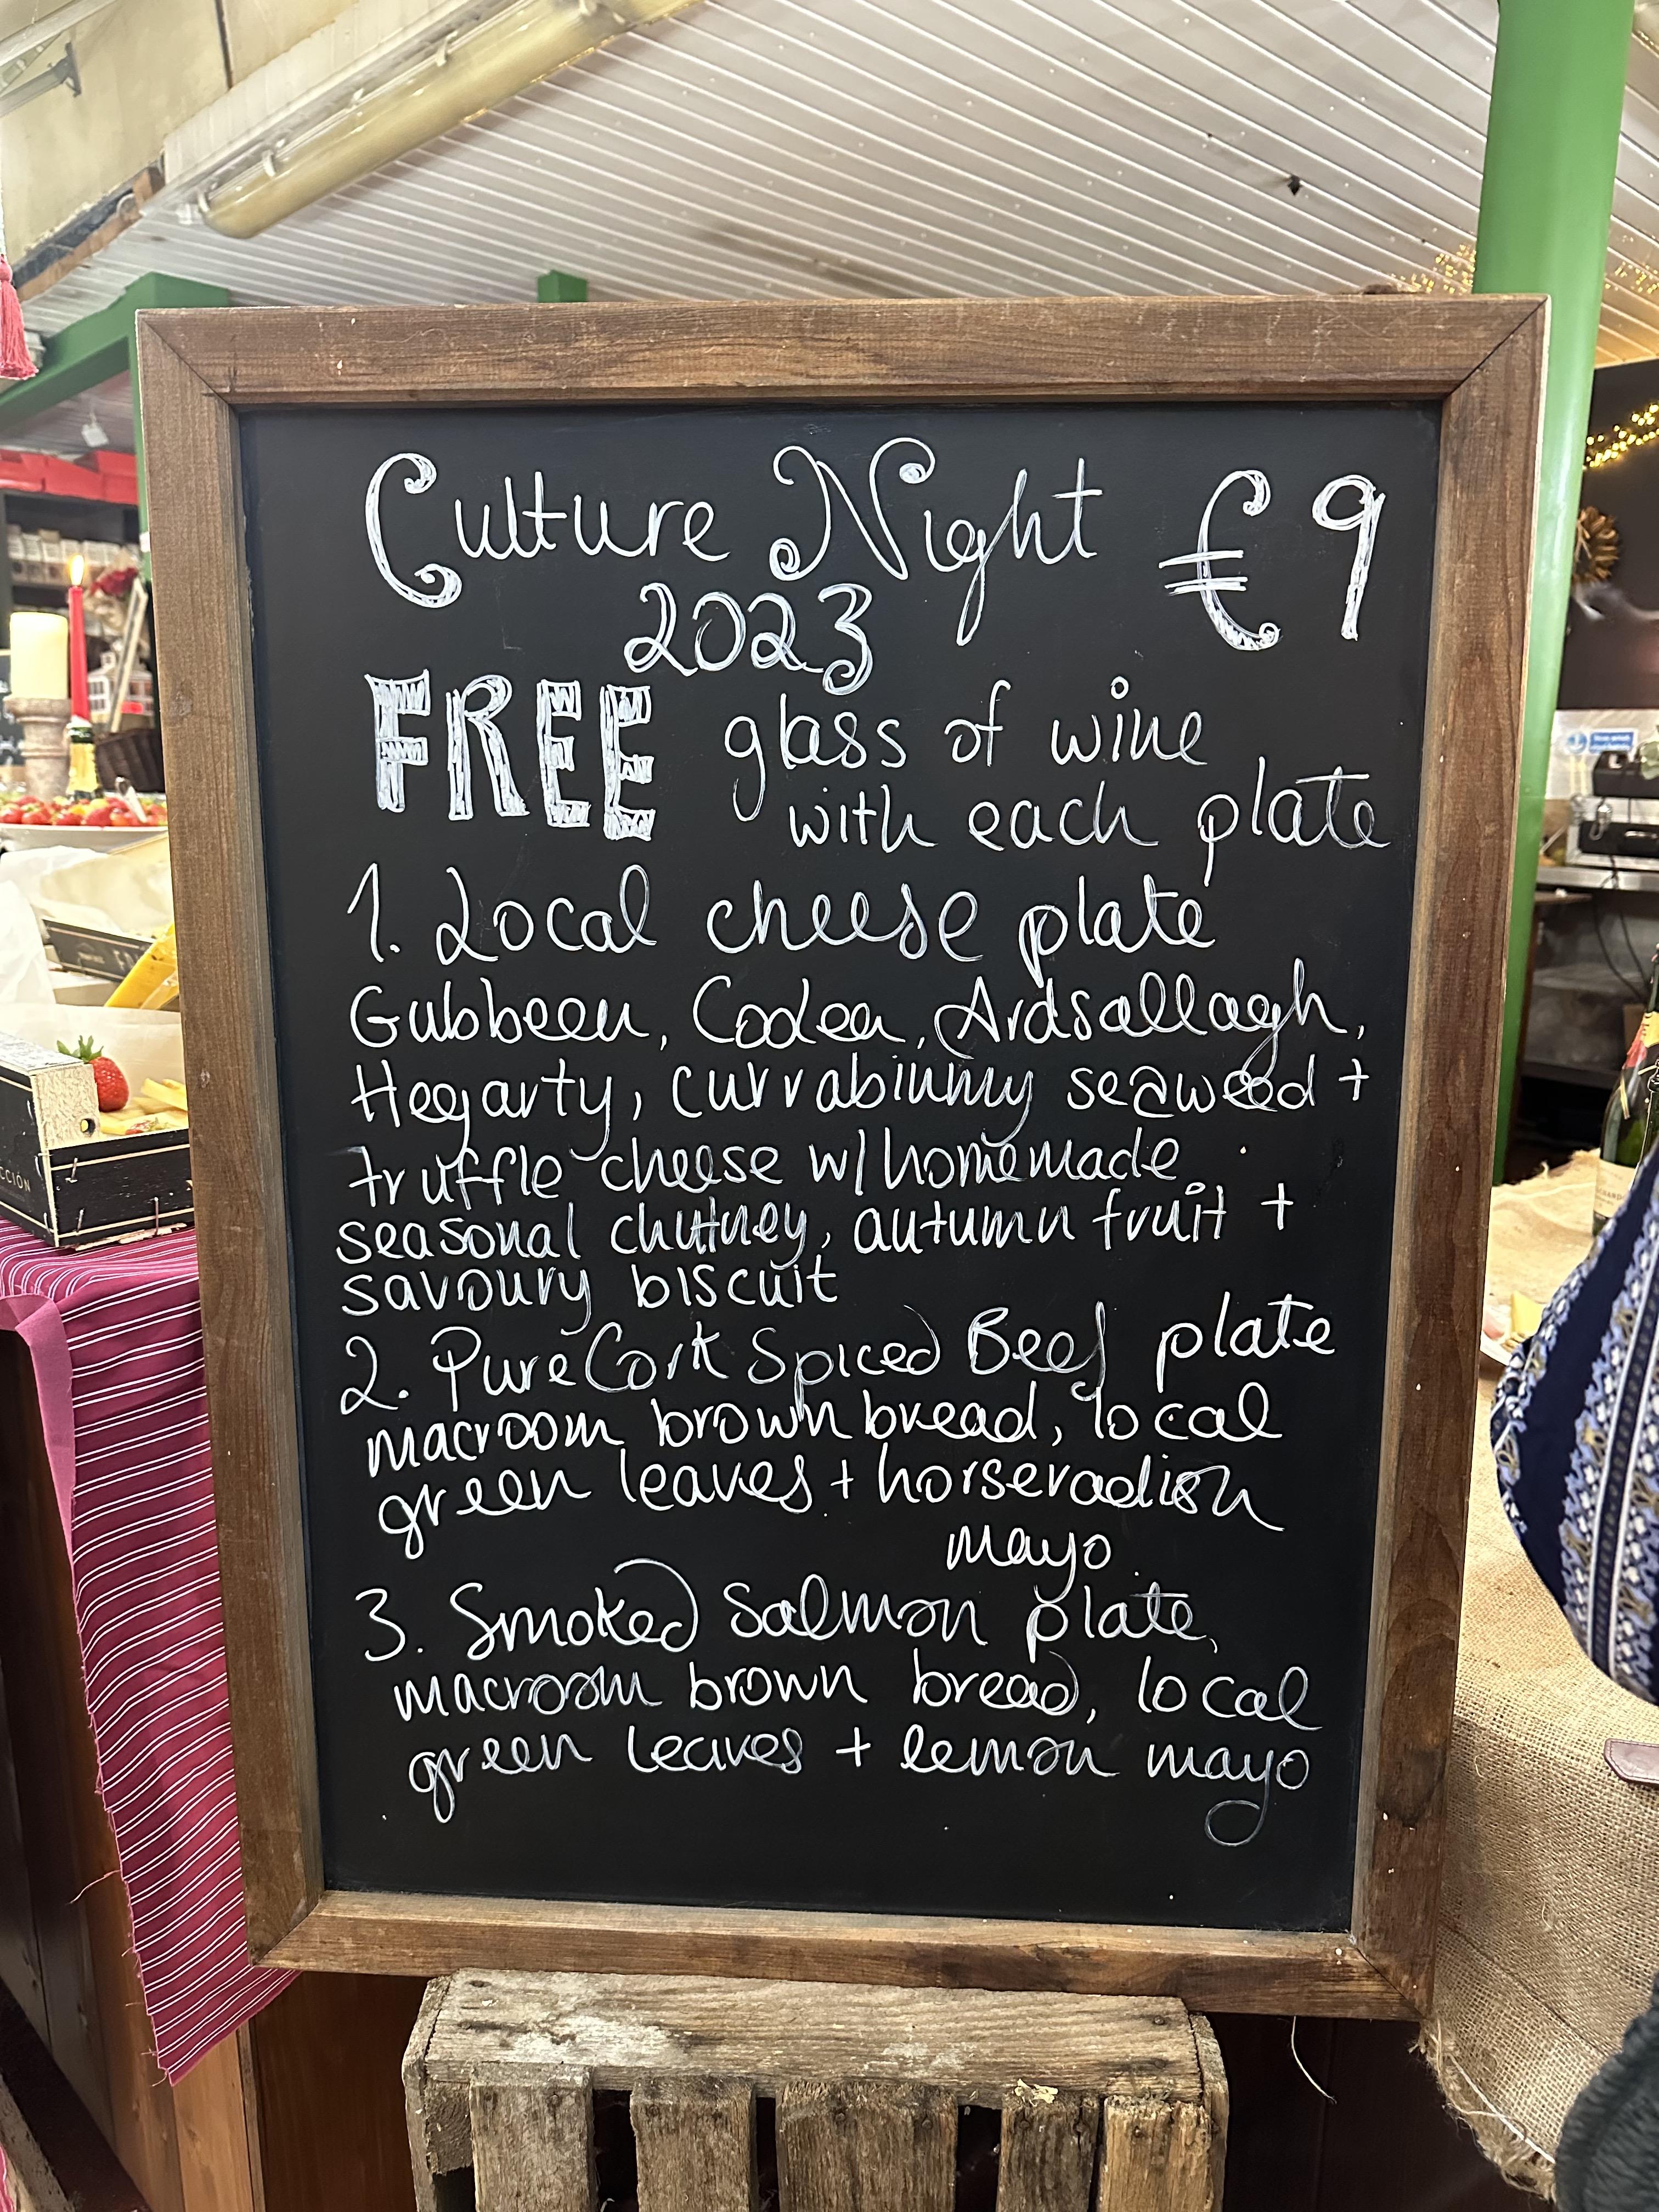 Culture Night €9
2023
FREE glass of wine
with each plate
1. Local cheese plate
Gubbeen, Coolea, Ardsallagh,
Hegarty, currabinny seaweed +
truffle cheese w/ homemade
seasonal chutney, autumn fruit +
savoury biscuit
2. Pure Cork Spiced Beef plate
macroom brown bread, local
green leaves + horseradish
mayo
3. Smoked Salmon plate,
macroom brown bread, local
green leaves + lemon mayo